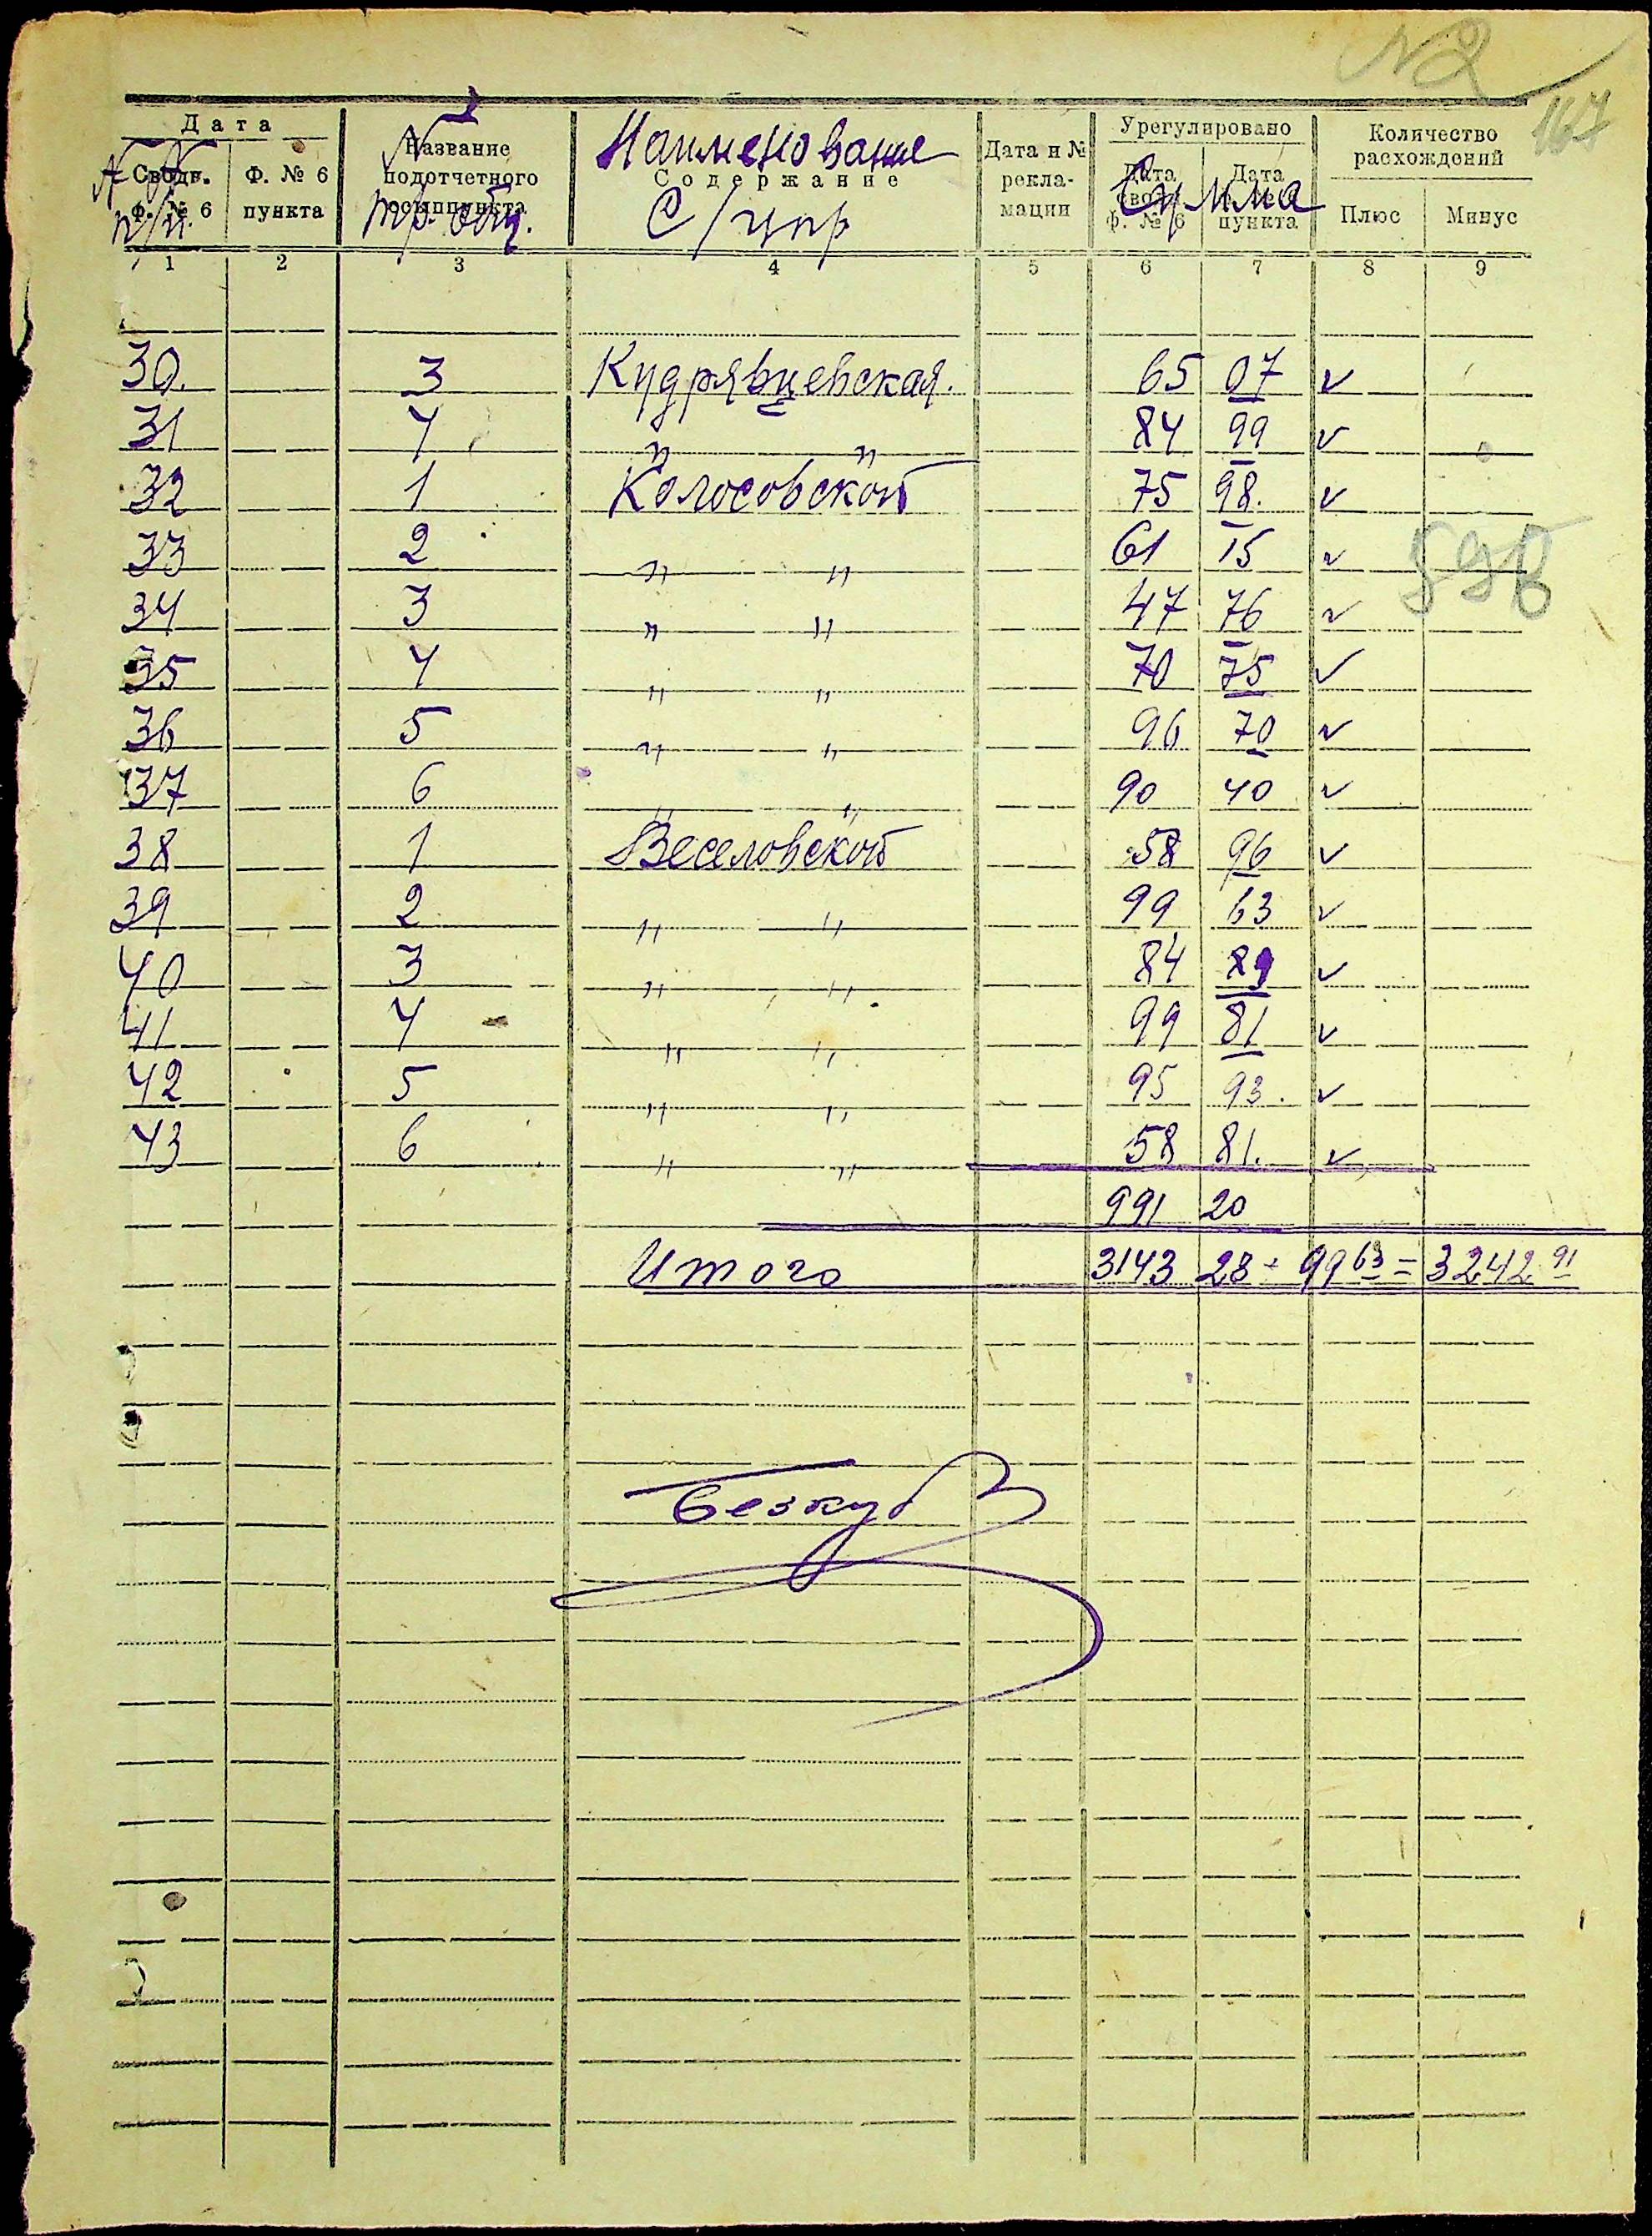 N2
167
Дата
Сводн. Ф. № 6
Ф. № 6 пункта
Название подотчетного
Содержание
Дата и № рекламации
Урегулировано
Дата
Ф. № 6
Дата
пункта
Количество расхождений
Плюс
Минус
№
п/п.
№
тр. общ.
Наименование
С/упр
Сумма
1 2 3 4 5 6 7 8 9
30. 3 Кудрявцевская. 65 07 ✓
31 4 " " 84 99 ✓
32 1 Колосовской 75 98. ✓
33 2 " " 61 15 ✓
34 3 " " 47 76 ✓
35 4 " " 70 75 ✓
36 5 " " 96 70 ✓
37 6 " " 90 40 ✓
38 1 Веселовской 58 96 ✓
39 2 " " 99 63 ✓
40 3 " " 84 89 ✓
41 4 " " 99 81 ✓
42 5 " " 95 93. ✓
43 6 " " 58 81. ✓
991 20
Итого 3143 28 + 99 63 = 3242 91